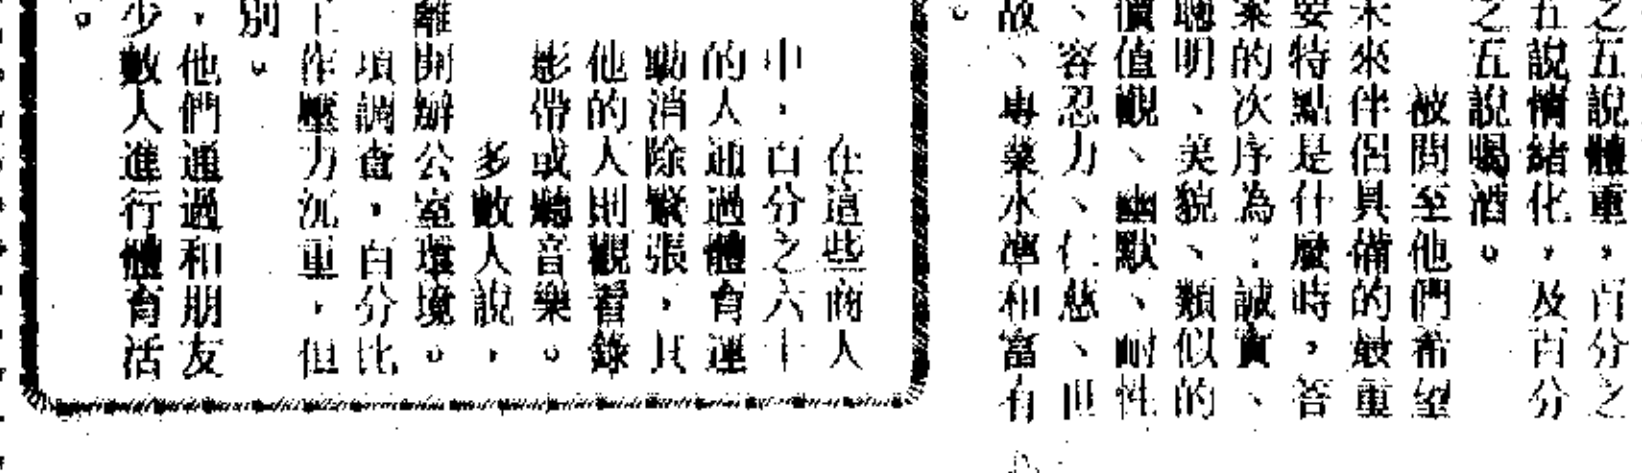 之五說體重，百分之
五說情緒化，及百分
之五說喝酒。
被問至他們希望
未來伴侶具備的最重
要特點是什麼時，答
案的次序為：誠實、
聰明、美貌、類似的
價值觀、幽默、耐性
、容忍力、仁慈、世
故、專業水準和富有
。
在這些商人
中，百分之六十
的人通過體育運
動消除緊張，其
他的人則觀看錄
影帶或聽音樂。
多數人說，
離開辦公室環境。
項調查，百分比
工作壓力沉重，但
別。
，他們通過和朋友
少數人進行體育活
。